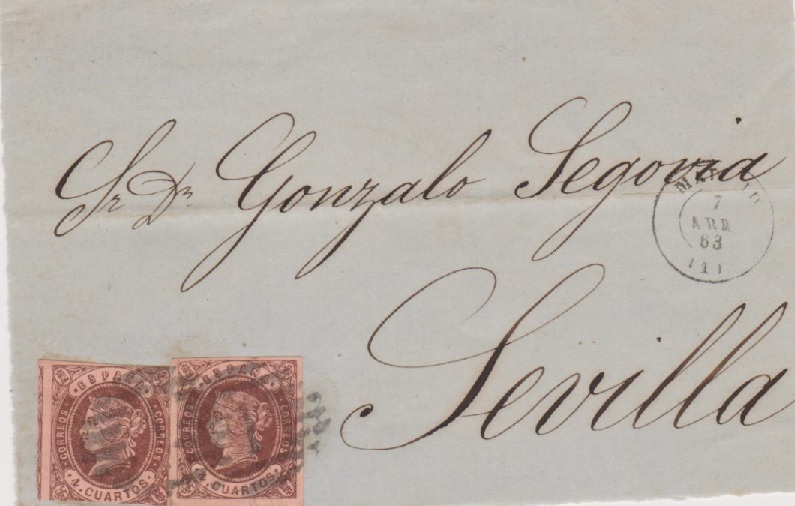 Sr. Dn. Gonzalo Segovia
7
ABR
63
(1)
Sevilla
CORREOS
CORREOS
4. CUARTOS
CORREOS
CORREOS
4. CUARTOS